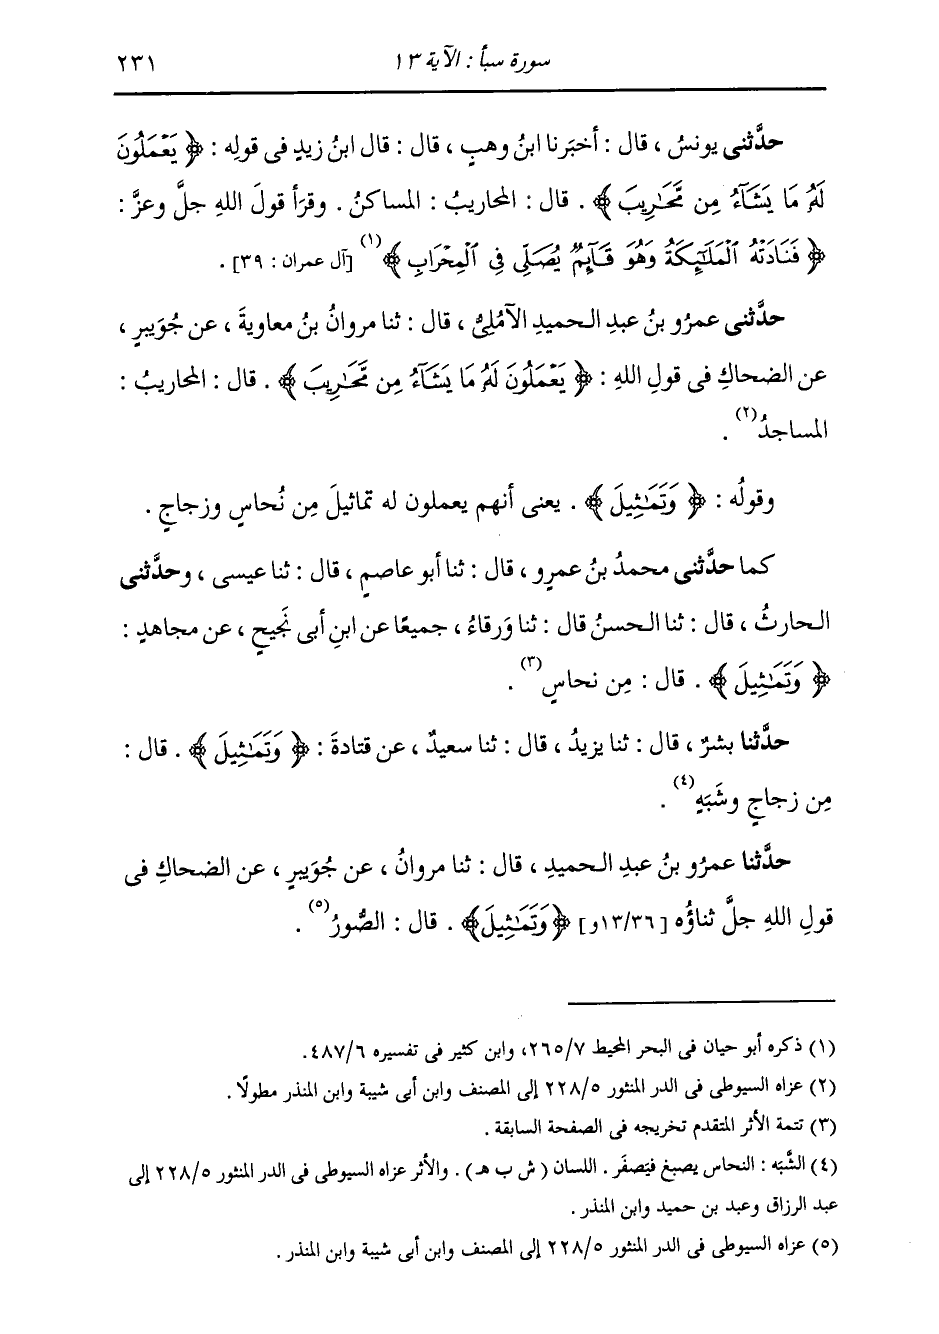 سورة سبأ : الآية ١٣
٢٣١
حدَّثنى يونسُ ، قال : أخبَرنا ابنُ وهبٍ ، قال : قال ابنُ زيدٍ فى قولِه : ﴿ يَعْمَلُونَ
لَهُۥ مَا يَشَآءُ مِن مَّحَٰرِيبَ ﴾ . قال : المحاريبُ : المساكنُ . وقرَأ قولَ اللهِ جلَّ وعزَّ :
﴿ فَنَادَتْهُ ٱلْمَلَٰٓئِكَةُ وَهُوَ قَآئِمٌ يُصَلِّى فِى ٱلْمِحْرَابِ ﴾ (١) [آل عمران : ٣٩] .
حدَّثنى عمرُو بنُ عبدِ الحميدِ الآمُلِىُّ ، قال : ثنا مروانُ بنُ معاويةَ ، عن جُوَيبرٍ ،
عن الضحاكِ فى قولِ اللهِ : ﴿ يَعْمَلُونَ لَهُۥ مَا يَشَآءُ مِن مَّحَٰرِيبَ ﴾ . قال : المحاريبُ :
المساجدُ (٢) .
وقولُه : ﴿ وَتَمَٰثِيلَ ﴾ . يعنى أنهم يعملون له تماثيلَ مِن نُحاسٍ وزجاجٍ .
كما حدَّثنى محمدُ بنُ عمرٍو ، قال : ثنا أبو عاصمٍ ، قال : ثنا عيسى ، وحدَّثنى
الحارثُ ، قال : ثنا الحسنُ قال : ثنا وَرقاءُ ، جميعًا عن ابنِ أبى نَجيحٍ ، عن مجاهدٍ :
﴿ وَتَمَٰثِيلَ ﴾ . قال : مِن نحاسٍ (٣) .
حدَّثنا بشرٌ ، قال : ثنا يزيدُ ، قال : ثنا سعيدٌ ، عن قتادةَ : ﴿ وَتَمَٰثِيلَ ﴾ . قال :
مِن زجاجٍ وشَبَهٍ (٤) .
حدَّثنا عمرُو بنُ عبدِ الحميدِ ، قال : ثنا مروانُ ، عن جُوَيبرٍ ، عن الضحاكِ فى
قولِ اللهِ جلَّ ثناؤُه [ ١٣/٣٦و] ﴿ وَتَمَٰثِيلَ﴾ . قال : الصُّورُ (٥) .
(١) ذكره أبو حيان فى البحر المحيط ٢٦٥/٧، وابن كثير فى تفسيره ٤٨٧/٦.
(٢) عزاه السيوطى فى الدر المنثور ٢٢٨/٥ إلى المصنف وابن أبى شيبة وابن المنذر مطولًا .
(٣) تتمة الأثر المتقدم تخريجه فى الصفحة السابقة .
(٤) الشَّبَه : النحاس يصبغ فيَصفَر . اللسان ( ش ب هـ ) . والأثر عزاه السيوطى فى الدر المنثور ٢٢٨/٥ إلى
عبد الرزاق وعبد بن حميد وابن المنذر .
(٥) عزاه السيوطى فى الدر المنثور ٢٢٨/٥ إلى المصنف وابن أبى شيبة وابن المنذر .